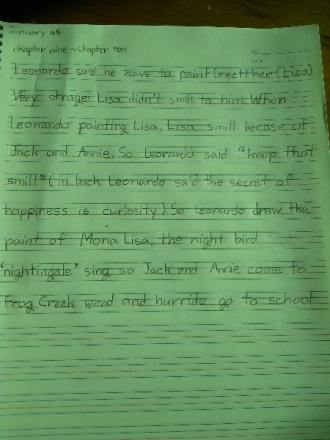 January 24
chapter nine ~ chapter ten
Leonardo said he have to paint (meet) her (Lisa)
Very strager Lisa didn't smill to him. When
Leonardo painting Lisa, Lisa smill becase of
Jack and Annie. So Leonardo said "keep that
smill" (in back Leonardo said the secret of
happiness is curiosity) So Leonardo drew the
paint of Mona Lisa, the night bird
"nightingale" sing so Jack and Annie come to
Frog Creek wood and hurride go to school